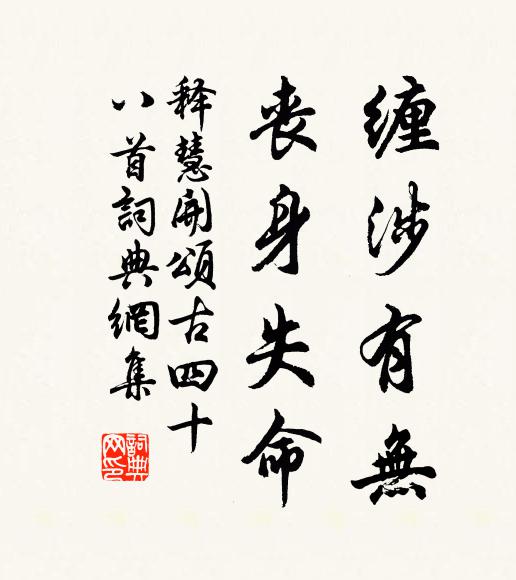 缠涉有無
喪身失命
释慧開頌古四十
八首詞典網集
詞典
网印